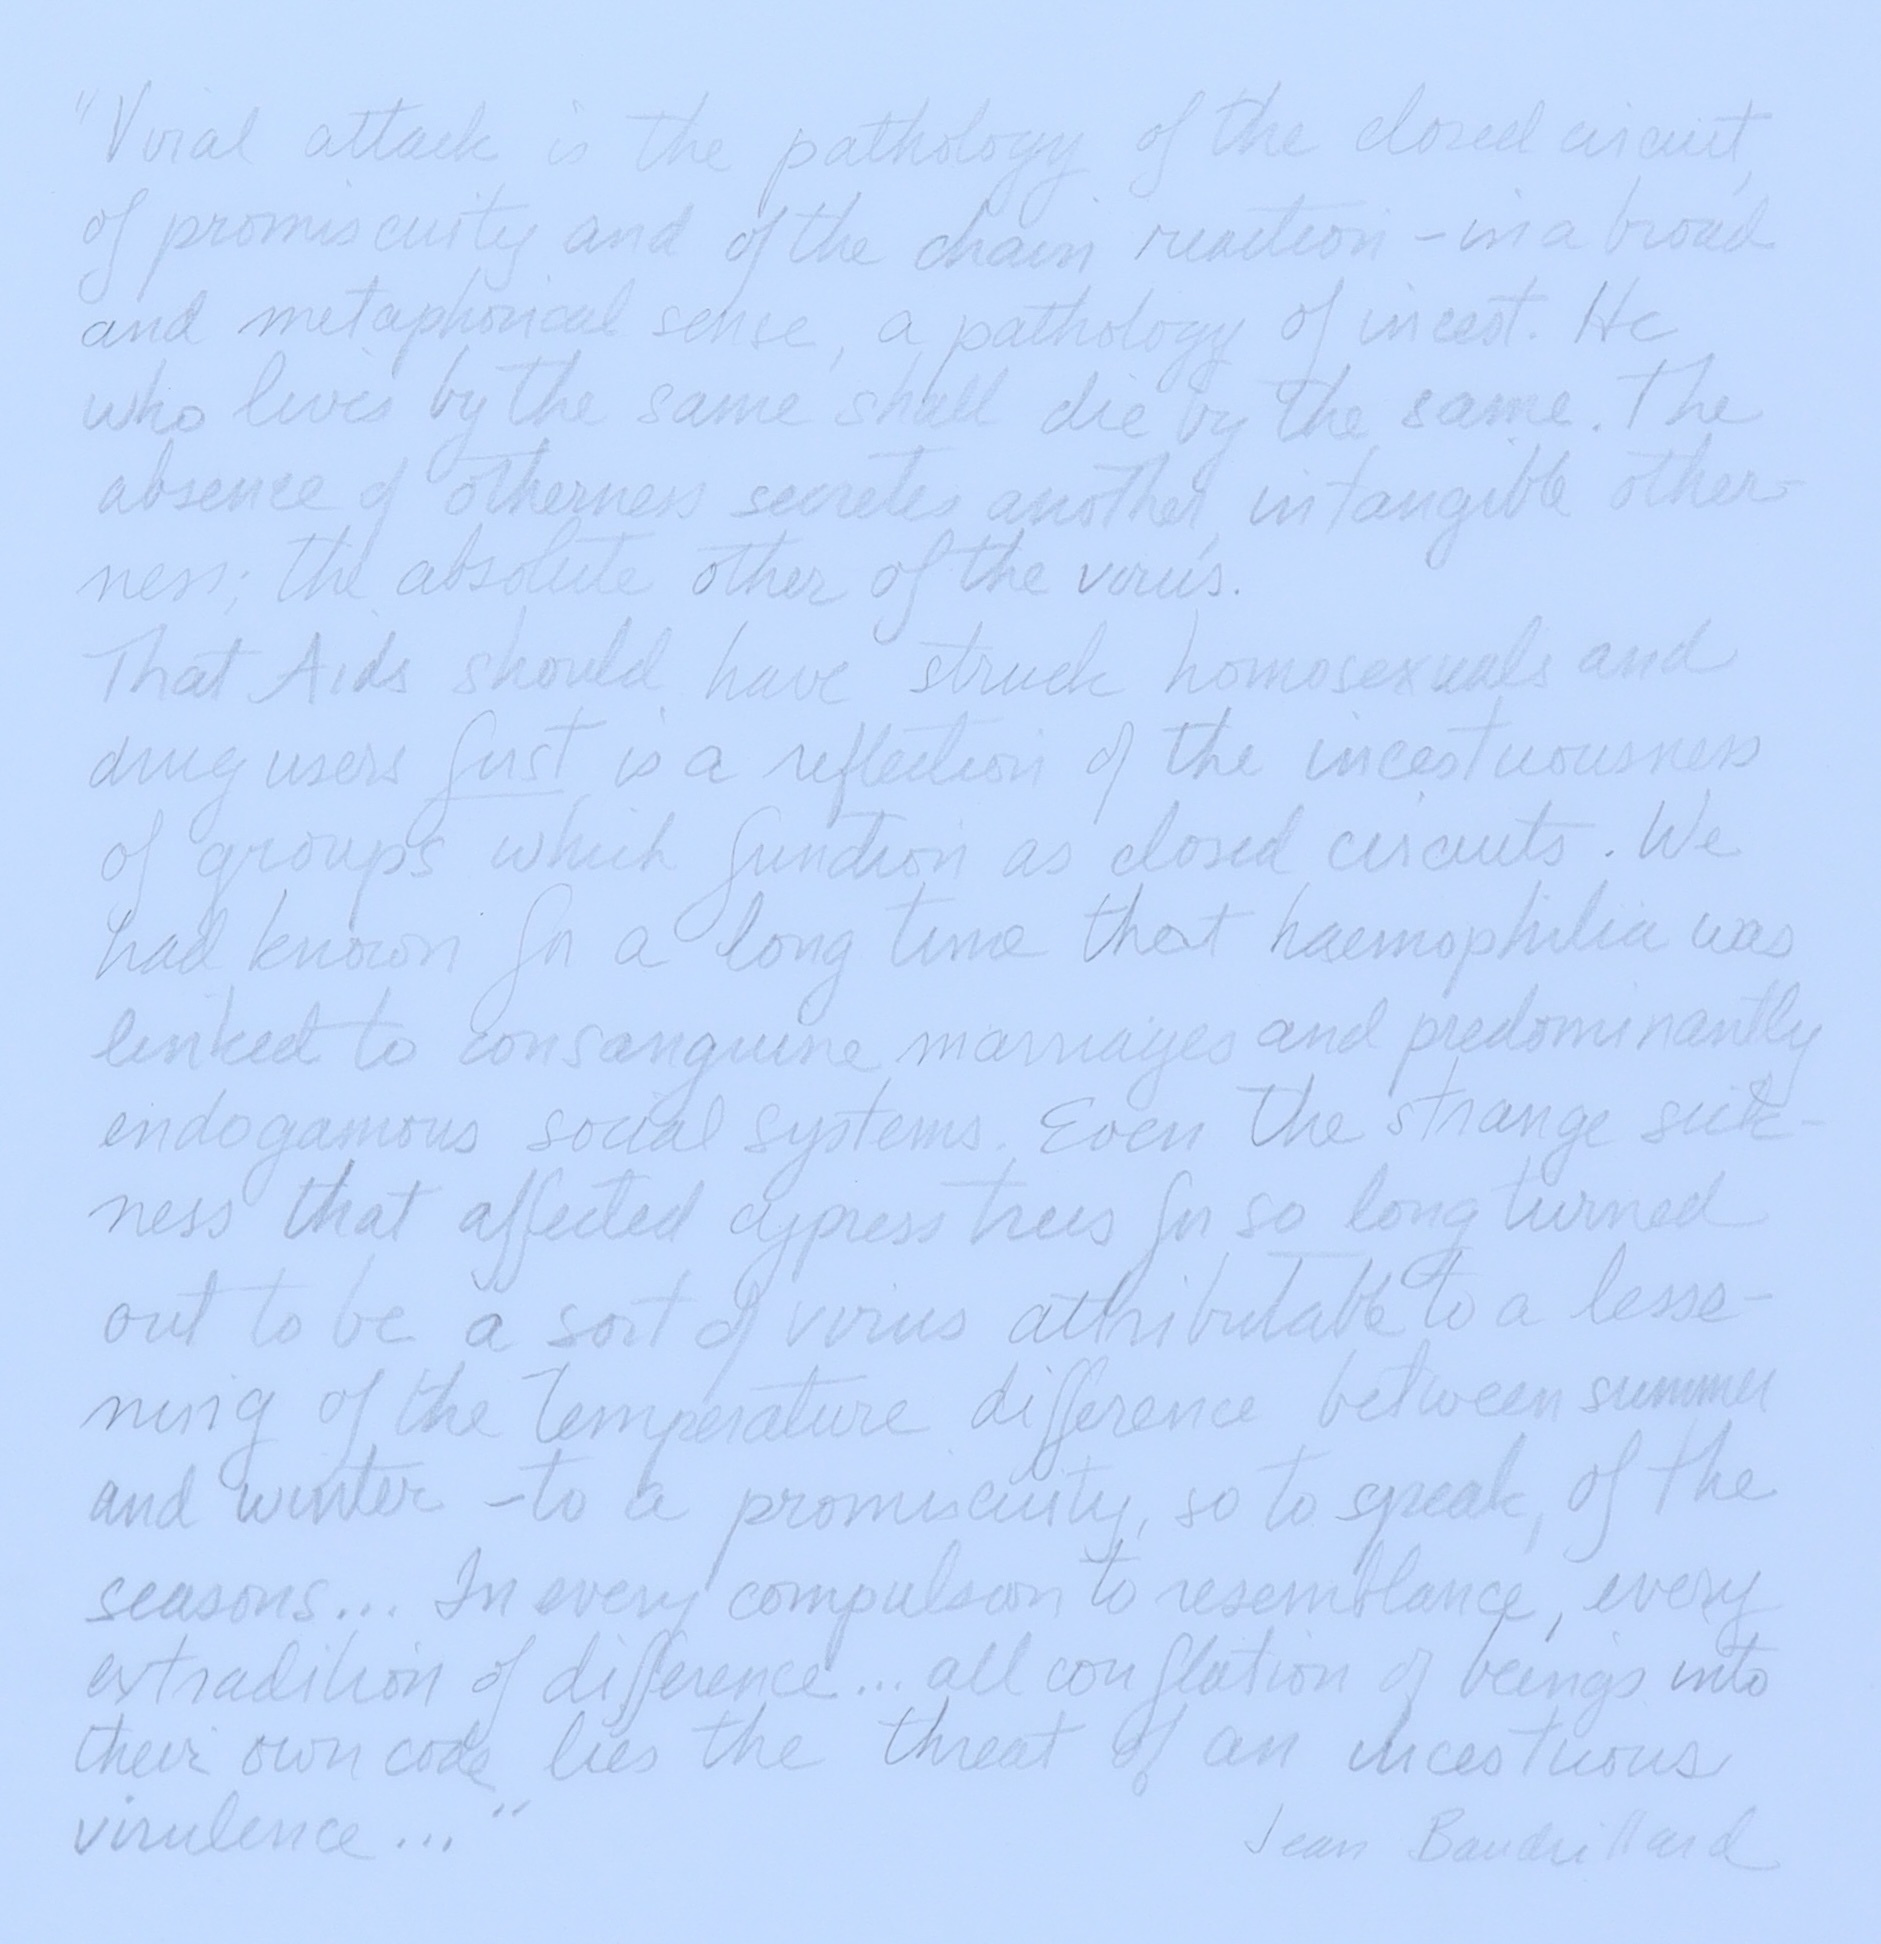 "Viral attack is the pathology of the closed circuit,
of promiscuity and of the chain reaction – in a broad
and metaphorical sense, a pathology of incest. He
who lives by the same shall die by the same. The
absence of otherness secretes another, intangible other-
ness; the absolute other of the virus.
That Aids should have struck homosexuals and
drug users first is a reflection of the incestuousness
of groups which function as closed circuits. We
had known for a long time that haemophilia was
linked to consanguine marriages and predominantly
endogamous social systems. Even the strange sick-
ness that affected cypress trees for so long turned
out to be a sort of virus attributable to a lesse-
ning of the temperature difference between summer
and winter – to a promiscuity, so to speak, of the
seasons... In every compulsion to resemblance, every
extradition of difference... all conflation of beings into
their own code lies the threat of an incestuous
virulence..."
Jean Baudrillard